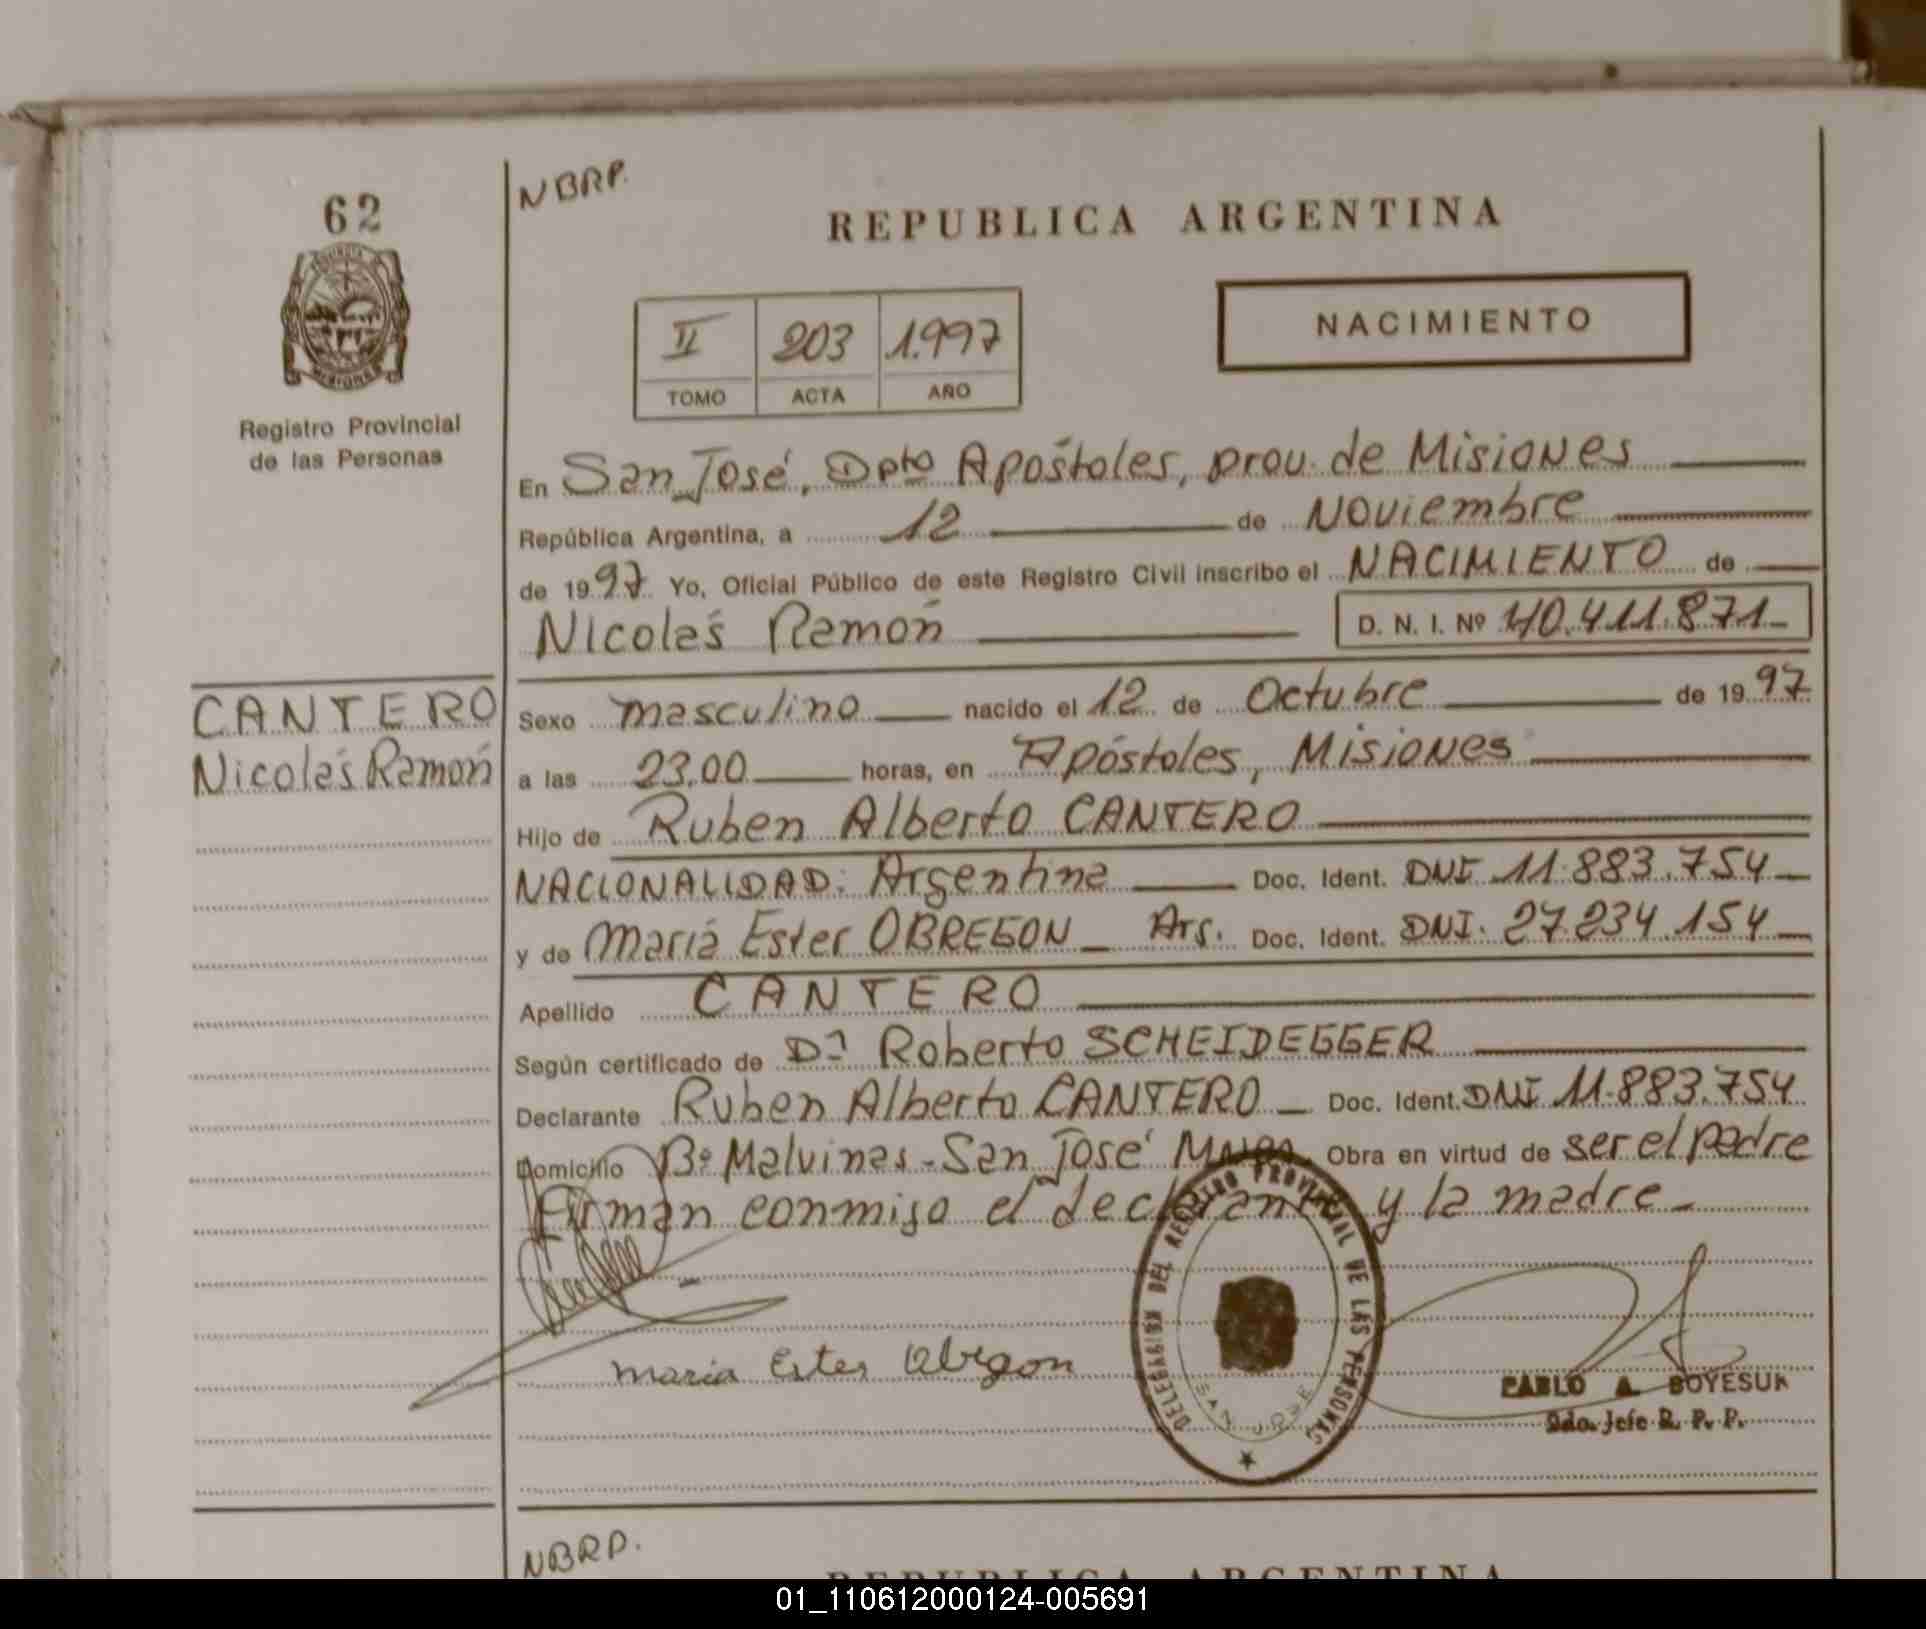 62
NBRP.
REPUBLICA ARGENTINA
PROVINCIA DE
MISIONES
Registro Provincial
de las Personas
II 203 1.997
TOMO ACTA AÑO
NACIMIENTO
En San José, Dpto Apóstoles, prov. de Misiones
República Argentina, a 12 de Noviembre
de 1997 Yo, Oficial Público de este Registro Civil inscribo el NACIMIENTO de
Nicolás Ramón D. N. I. Nº 40.411.871
CANTERO
Nicolás Ramón
Sexo masculino nacido el 12 de Octubre de 1997
a las 23,00 horas, en Apóstoles, Misiones
Hijo de Ruben Alberto CANTERO
NACIONALIDAD: Argentina Doc. Ident. DNI 11.883.754
y de María Ester OBREGON Arg. Doc. Ident. DNI. 27.234.154
Apellido CANTERO
Según certificado de Dr Roberto SCHEIDEGGER
Declarante Ruben Alberto CANTERO Doc. Ident. DNI 11.883.754
Domicilio Bº Malvinas - San José Mnes. Obra en virtud de ser el padre
Firman conmigo el declarante y la madre
DELEGACION DEL REGISTRO PROVINCIAL DE LAS PERSONAS
SAN JOSE
maria Ester Obregon
PABLO A. BOYESUK
2do. Jefe R. P. P.
NBRP.
REPUBLICA ARGENTINA
01_110612000124-005691